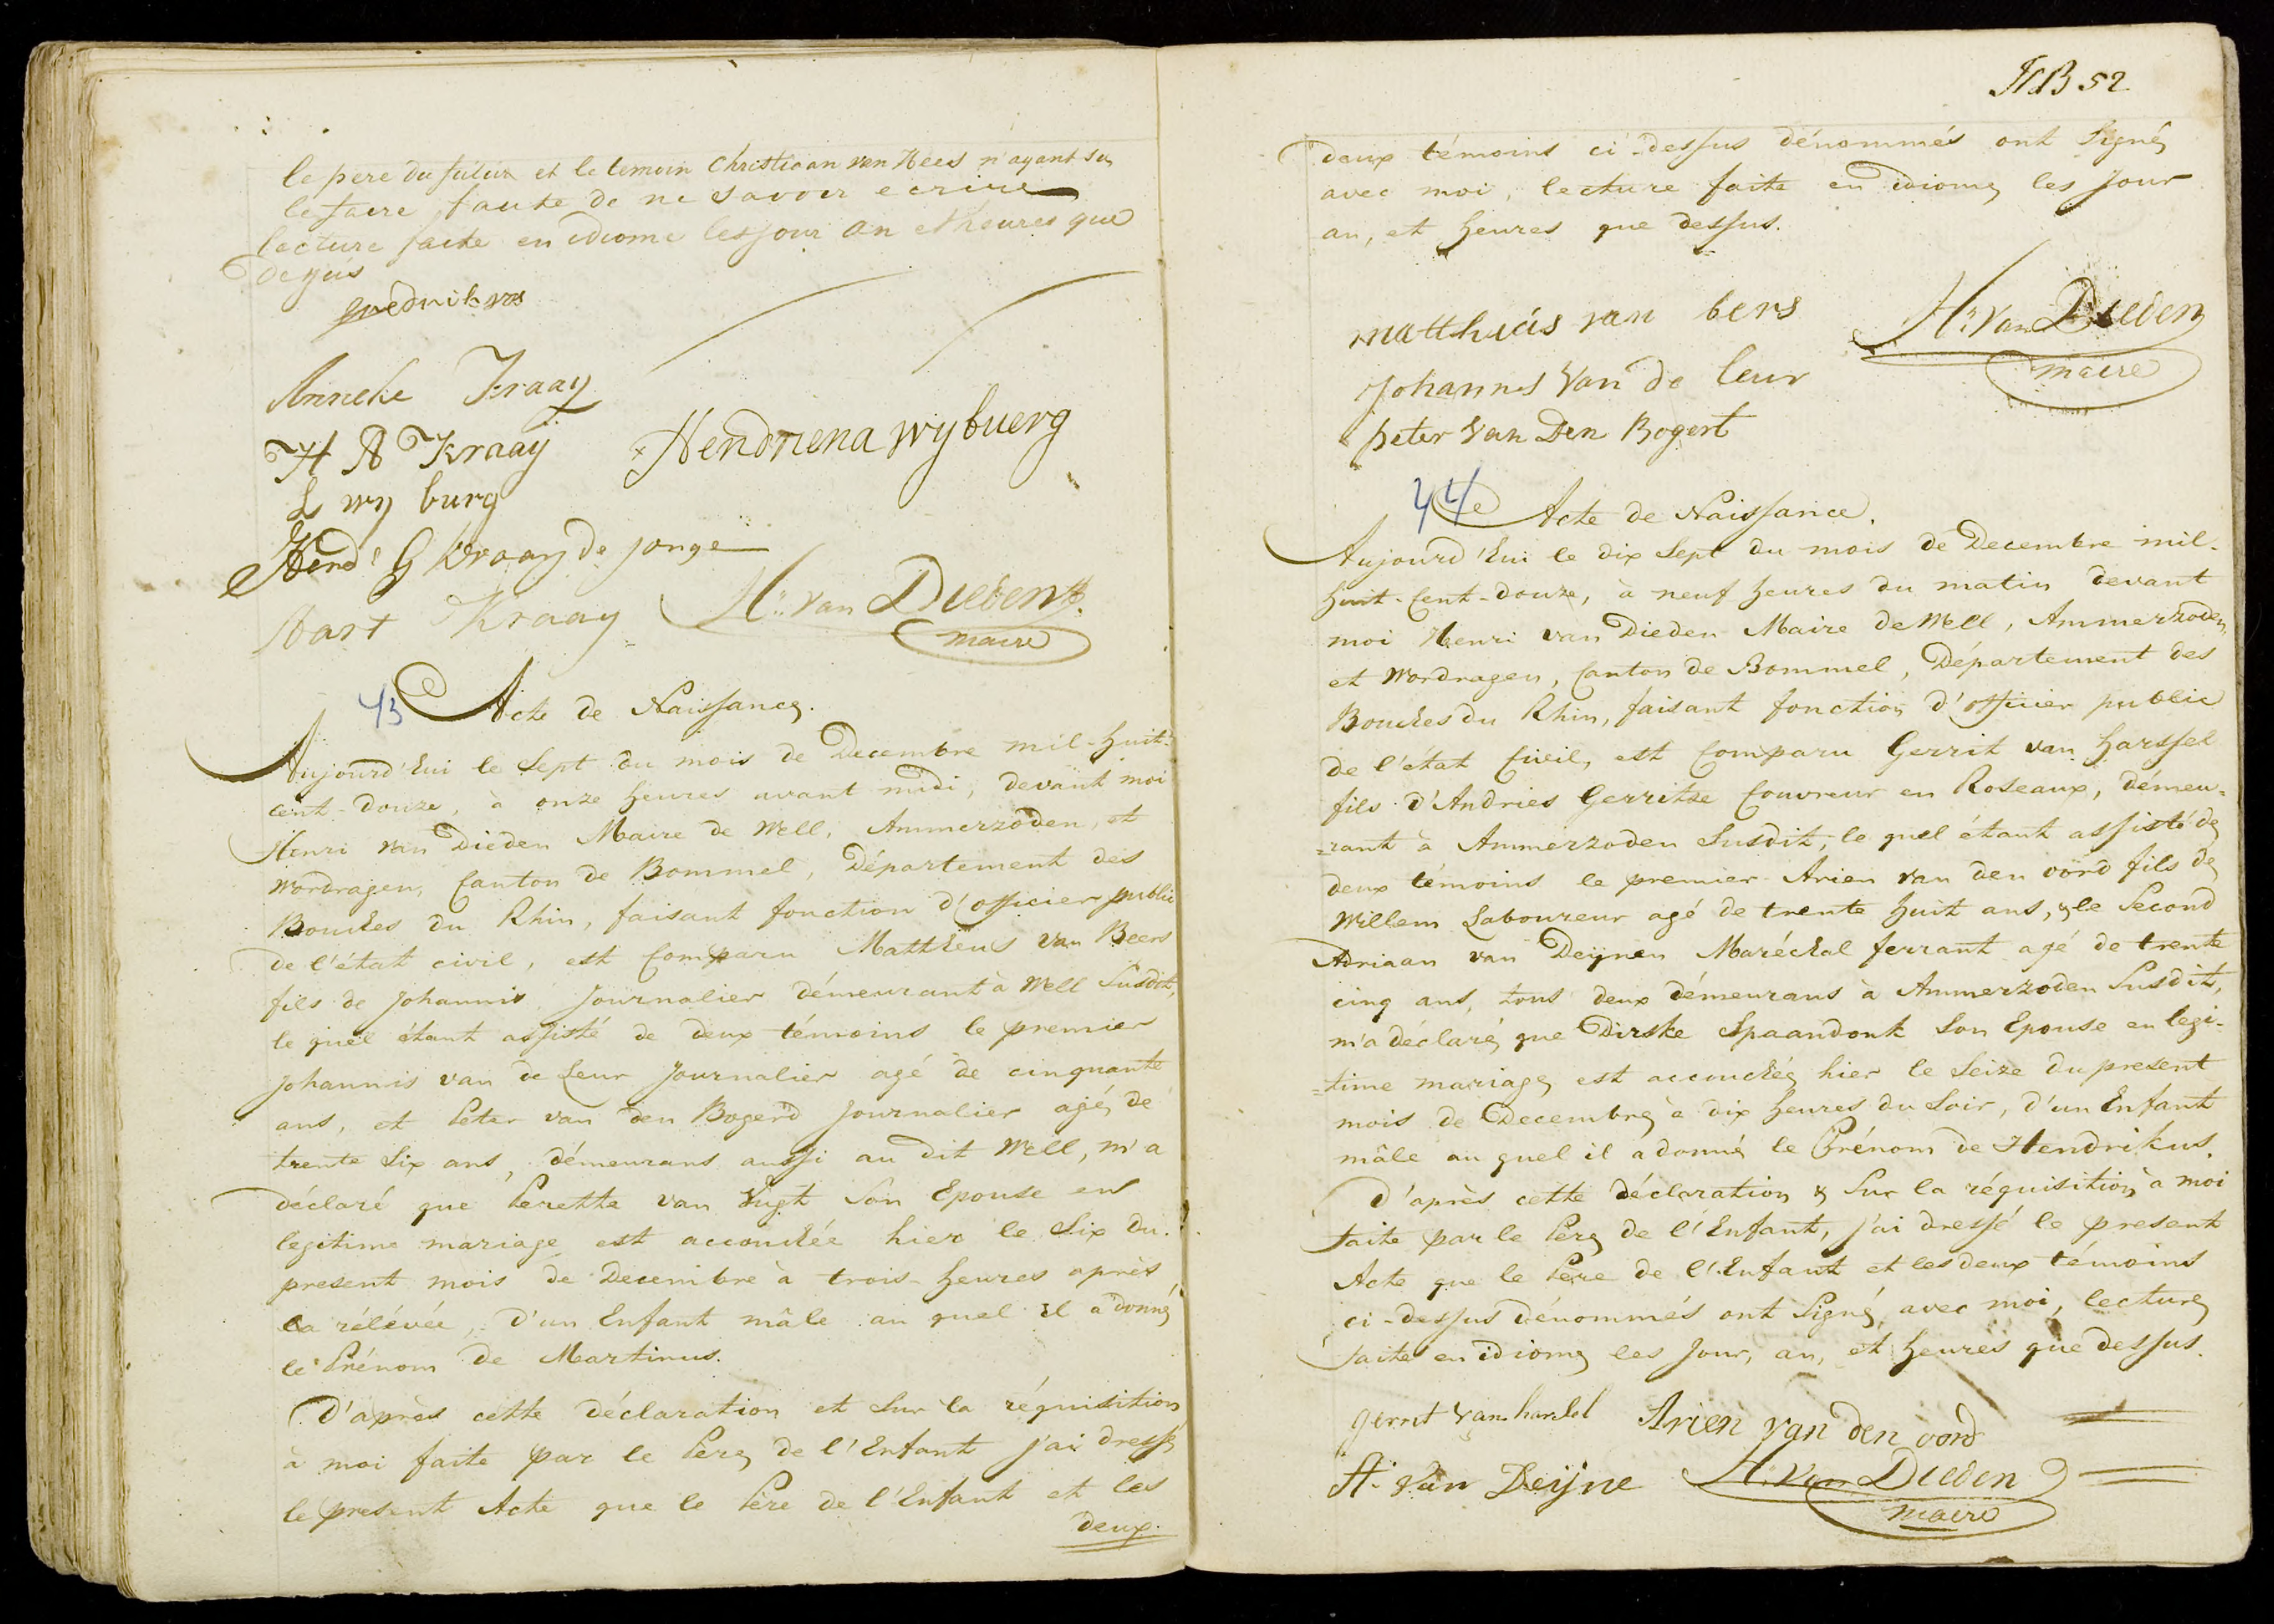 le pere du futur et le temoin Christiaan van Hees n'ayant su
le faire faute de ne savoir ecrire
lecture faite en idiome les jour an et heures que
Anneke Kraay
H A Kraaij
Hendriena wybuerg
L wy burg
Hend G Kraay de jonge
Aart Kraay
H: van Dieden
maire
43
Acte de Naissance.
Aujourd'hui le Sept du mois de Decembre mil-huit-
cent-douze, à onze heures avant midi, devant moi
Henri van Dieden Maire de Well, Ammerzoden, et
Wordragen, Canton de Bommel, Département des
Bouches du Rhin, faisant fonction d'officier public
de l'état civil, est Comparu Mattheus van Beers
fils de Johannis Journalier démeurant à Well Susdit,
le quel étant assisté de deux témoins le premier
Johannis van de Leur Journalier agé de cinquante
ans, et Peter van den Bogerd Journalier agé de
trente Six ans, démeurans aussi au dit Well, m'a
déclaré que Perette van Vugt Son Epouse en
legitime mariage est accouchée hier le Six du
present mois de Decembre à trois-heures après
la rélévée, d'un Enfant mâle au quel il a donné
le Prénom de Martinus.
D'après cette déclaration et Sur la réquisition
à moi faite par le Père de l'Enfant j'ai dressé
le present Acte que le Père de l'Enfant et les
deux.
52
deux témoins ci-dessus dénommés ont Signé
avec moi, lecture faite en idiome les Jour
an, et heures que dessus.
matthuis van bers
H: Van Dieden
maire
Johannes Van de leur
peter Van Den Bogert
44
Acte de Naissance.
Aujourd'hui le dix Sept du mois de Decembre mil-
huit-Cent-douze, à neuf heures du matin devant
moi Henri van Dieden Maire de Well, Ammerzoden,
et Wordragen, Canton de Bommel, Département des
Bouches du Rhin, faisant fonction d'officier public
de l'état Civil, est Comparu Gerrit van Harssel
fils d'Andries Gerritse Couvreur en Roseaux, démeu=
=rant à Ammerzoden Susdit, le quel étant assisté de
deux témoins le premier Arien van den oord fils de
Willem Laboureur agé de trente huit ans, & le Second
Adriaan van Deijnen Maréchal ferrant agé de trente
cinq ans, tous deux démeurans à Ammerzoden Susdit,
m'a déclaré que Dirske Spaandonk Son Epouse en legi-
=time mariage est accouchée hier le Seize du present
mois de Decembre à dix heures du Soir, d'un Enfant
mâle au quel il a donné le Prénom de Hendrikus.
D'après cette déclaration & Sur la réquisition à moi
faite par le Père de l'Enfant, j'ai dressé le present
Acte que le Père de l'Enfant et les deux témoins
ci-dessus dénommés ont Signé avec moi, lecture
faite en idiome les Jour, an, et heures que dessus.
gerrit van
Arien van den oord
A. Van Deijne
H: van Dieden
maire